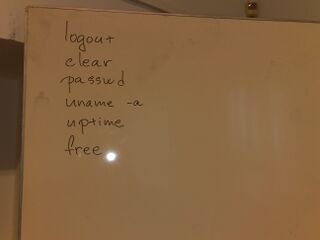 logout
clear
passwd
uname -a
uptime
free